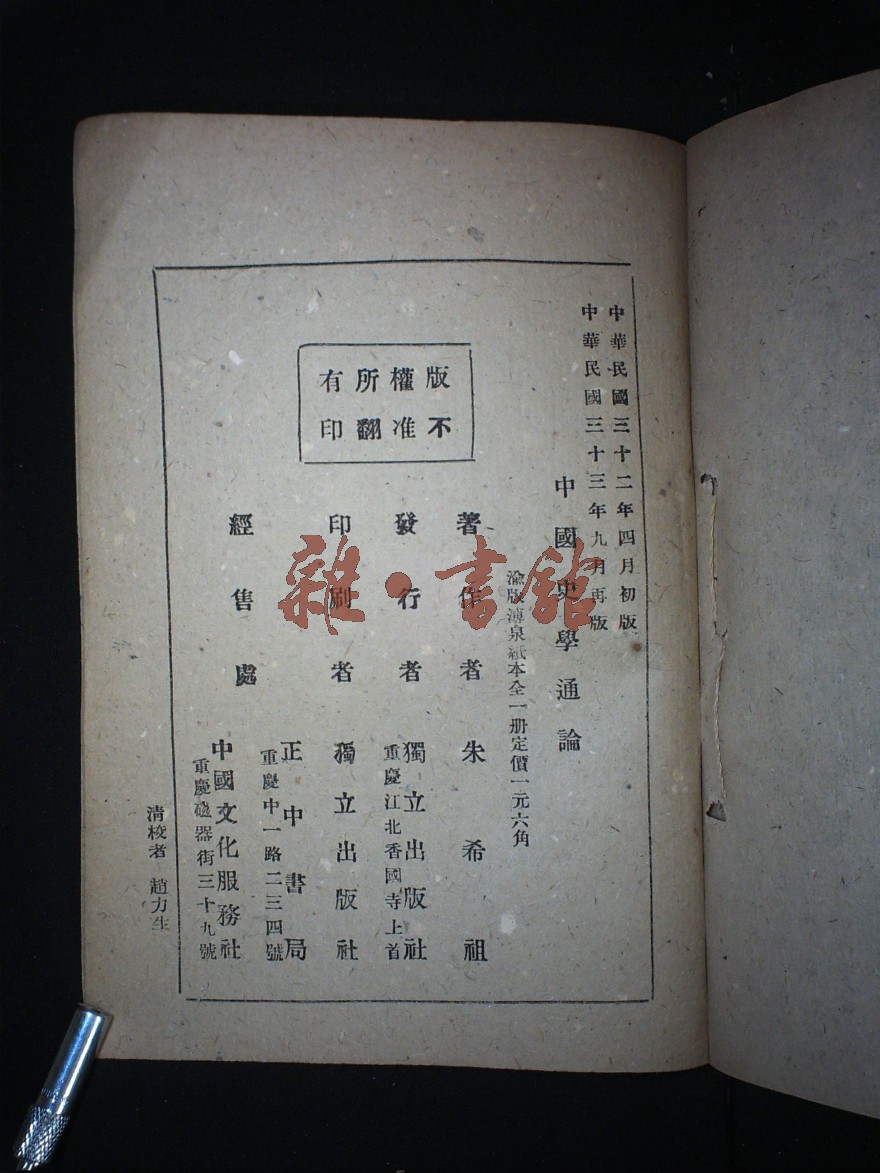 中華民國三十二年四月初版
中華民國三十三年九月再版
中國史學通論
渝版溥泉紙本全一册定價一元六角
版權所有
不准翻印
著作者 朱希祖
發行者 獨立出版社
重慶江北香國寺上首
印刷者 獨立出版社
經售處
正中書局
重慶中一路二三四號
中國文化服務社
重慶磁器街三十九號
清校者 趙力生
雜·書館